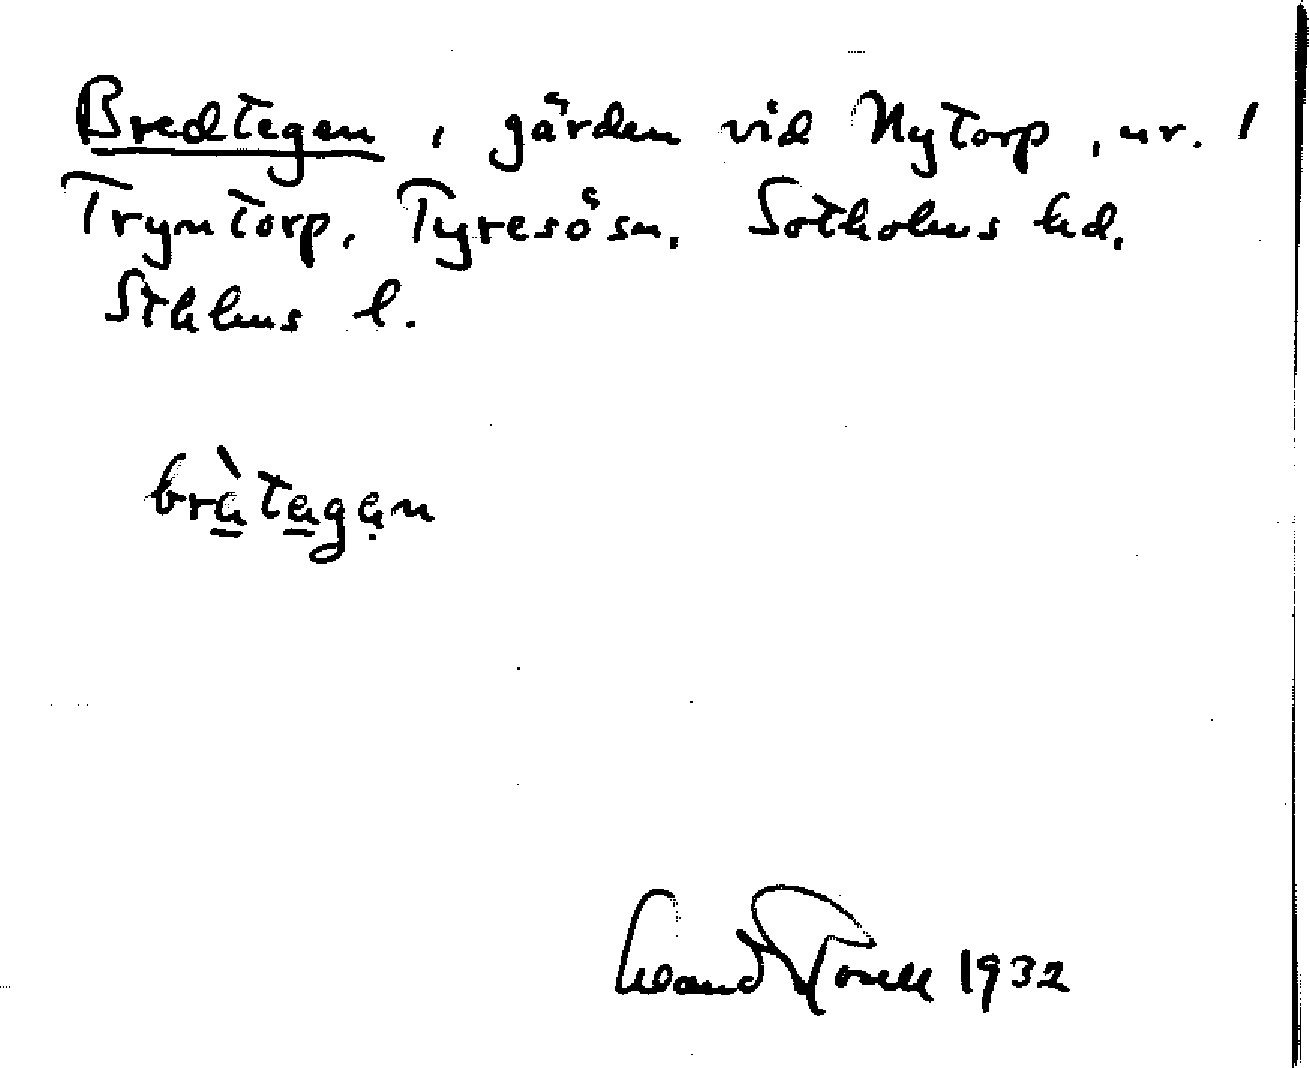 Bredtegen, gärden vid Nytorp, nr. 1
Tryntorp, Tyresö sn, Sotholms hd,
Sthlms l.
brè̱te̱gẹn
1932